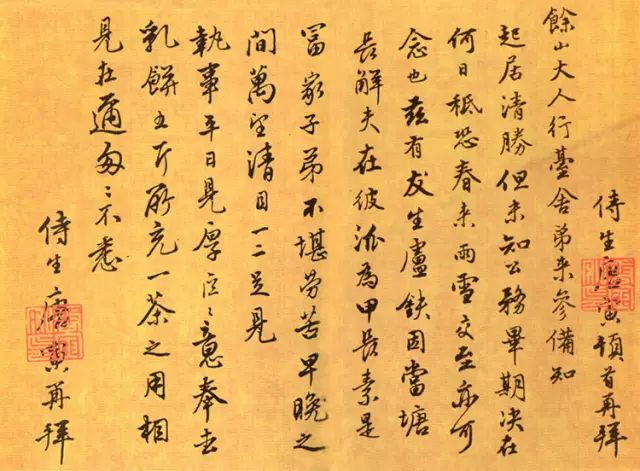 侍生唐寅頓首再拜
餘山大人行臺舍弟来參備知
起居清勝但未知公務畢期決在
何日秪恐春来雨雪交至亦可
念也茲有友生盧鈇因當塘
長解夫在彼派為甲長素是
富家子弟不堪勞苦早晚之
間萬望清目一二足見
執事平日見厚區〻意奉去
乳餅五斤所充一茶之用相
見在邇匆〻不悉
侍生唐寅再拜